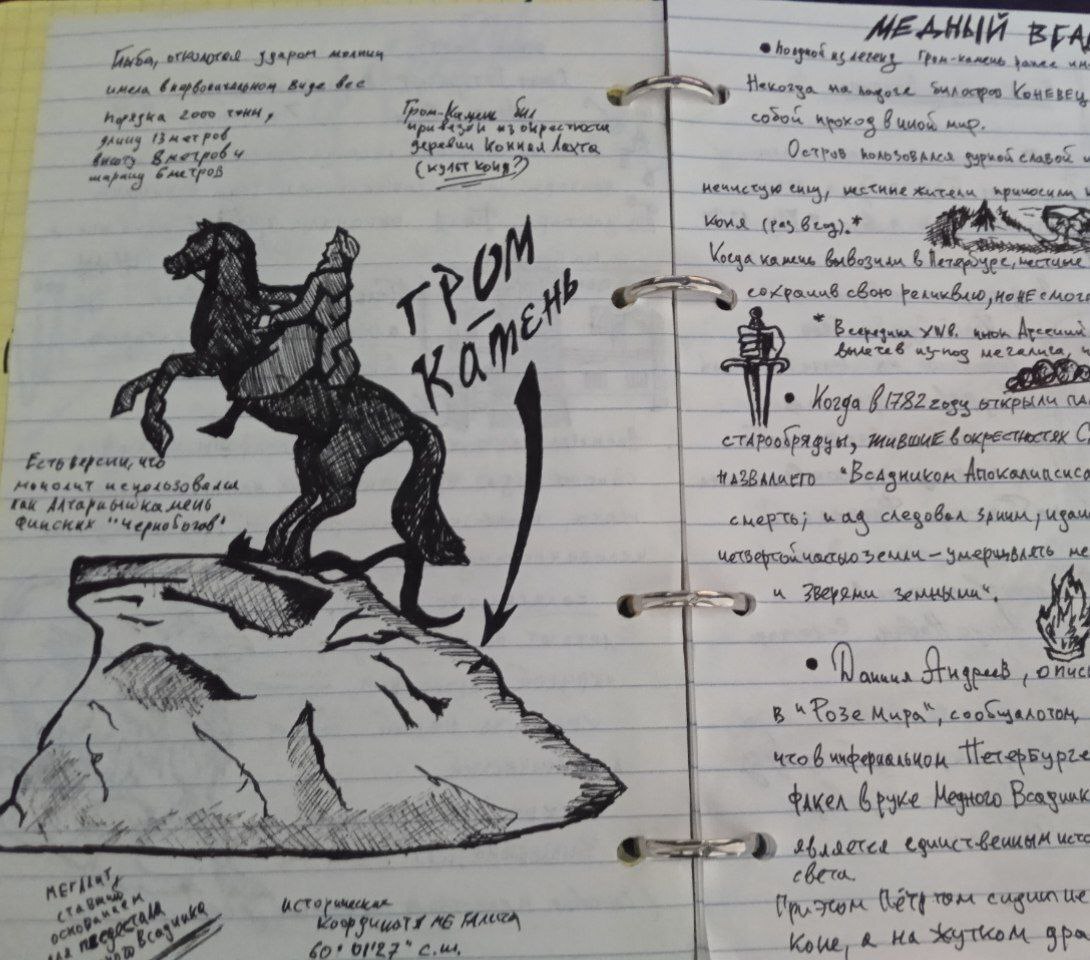 Глыба, отколотая ударом молнии
имела в первоначальном виде вес
порядка 2000 тонн,
длину 13 метров
высоту 8 метров и
ширину 6 метров
Гром-Камень был
привезён из окрестности
деревни Конная Лахта
(культ коня?)
ГРОМ
-
КАМЕНЬ
Есть версии, что
монолит использовался
как Алтарный камень
финских "Чернобогов"
МЕГАЛИТ,
ставший
основанием
для пьедестала
Всадника
исторические
координаты МЕГАЛИТА
60° 01'27" с.ш.
МЕДНЫЙ ВСА
• По одной из легенд Гром-камень ранее
Некогда на Ладоге был остров КОНЕВЕЦ
собой проход в иной мир.
Остров пользовался дурной славой и
нечистую силу, местные жители приносили
коня (раз в год).*
Когда камень вывозили в Петербург, местные
сохранив свою реликвию, но не смог
* В середине XIV в. инок Арсений
вылетев из-под мегалита,
• Когда в 1782 году открыли па
старообрядцы, жившие в окрестностях С
назвали его "Всадником Апокалипсиса
смерть; и ад следовал за ним; и дан
четвертой частью земли – умерщвлять ме
и зверями земными".
• Даниил Андреев, опис
в "Розе мира", сообщал о том,
что в инфернальном Петербурге
факел в руке Медного Всадник
является единственным исто
света.
При этом Пётр там сидит не
коне, а на жутком дра